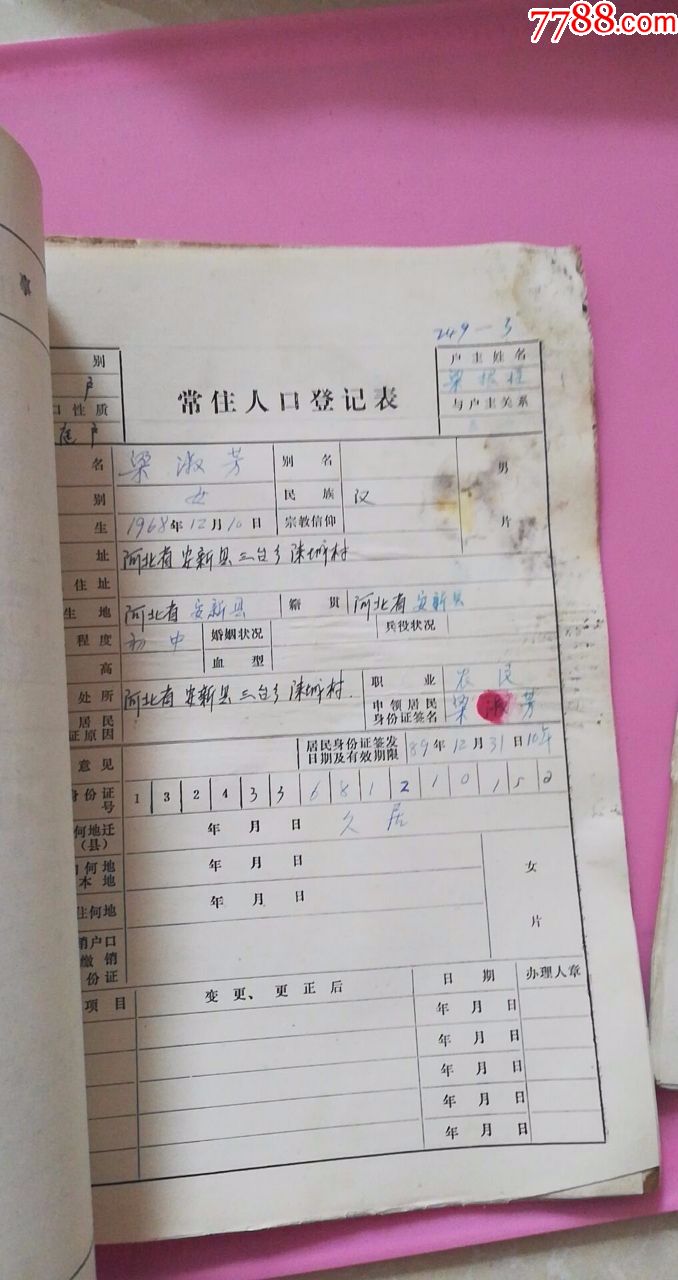 7788.com
249-3
别
户
户主姓名
梁根柱
口性质
常住人口登记表
与户主关系
名 梁淑芳 别名
男
别 女 民族 汉
生 1968年12月10日 宗教信仰
片
址 河北省安新县三台乡
住址
生地 河北省安新县 籍贯 河北省安新县
程度 初中 婚姻状况 兵役状况
高 血型
处所 河北省安新县三台乡
职业 农民
居民
证原因
申领居民
身份证签名 梁淑芳
意见
居民身份证签发
日期及有效期限 89年12月31日10年
身份证
号 132433681210152
何地迁
(县) 年月日 久居
何地
本地 年月日
女
住何地 年月日
片
销户口
缴销
份证
项目 变更、更正后 日期 办理人章
年月日
年月日
年月日
年月日
年月日